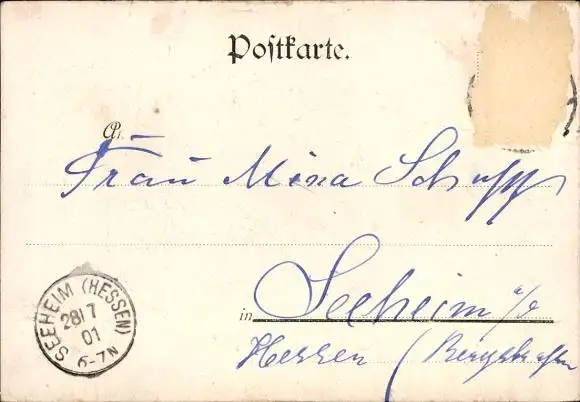 Postkarte.
An
Frau Mina Schupp
in Seeheim a/b
Hessen (Bergstrassen
SEEHEIM (HESSEN)
28/7
01
6-7N